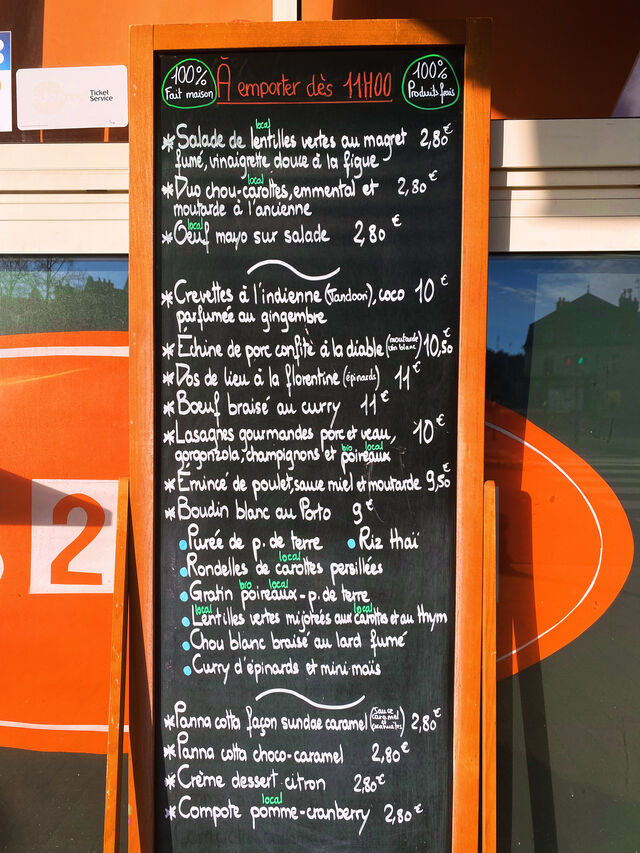 Ticket
Service
100%
Fait maison
À emporter dès 11H00
100%
Produits frais
local
*Salade de lentilles vertes au magret 2,80€
fumé, vinaigrette douce à la figue
local
*Duo chou-carottes, emmental et 2,80€
moutarde à l'ancienne
local
*Oeuf mayo sur salade 2,80€
*Crevettes à l'indienne (Tandoori), coco 10€
parfumée au gingembre
*Échine de porc confite à la diable (moutarde vin blanc) 10,50€
*Dos de lieu à la florentine (épinards) 11€
*Boeuf braisé au curry 11€
*Lasagnes gourmandes porc et veau, 10€
bio local
gorgonzola, champignons et poireaux
*Émincé de poulet, sauce miel et moutarde 9,50€
*Boudin blanc au Porto 9€
•Purée de p. de terre •Riz thaï
local
•Rondelles de carottes persillées
bio local
•Gratin poireaux-p. de terre
local local
•Lentilles vertes mijotées aux carottes et au thym
•Chou blanc braisé au lard fumé
•Curry d'épinards et mini-maïs
*Panna cotta façon sundae caramel (sauce caramel et cacahuètes) 2,80€
*Panna cotta choco-caramel 2,80€
*Crème dessert citron 2,80€
local
*Compote pomme-cranberry 2,80€
2